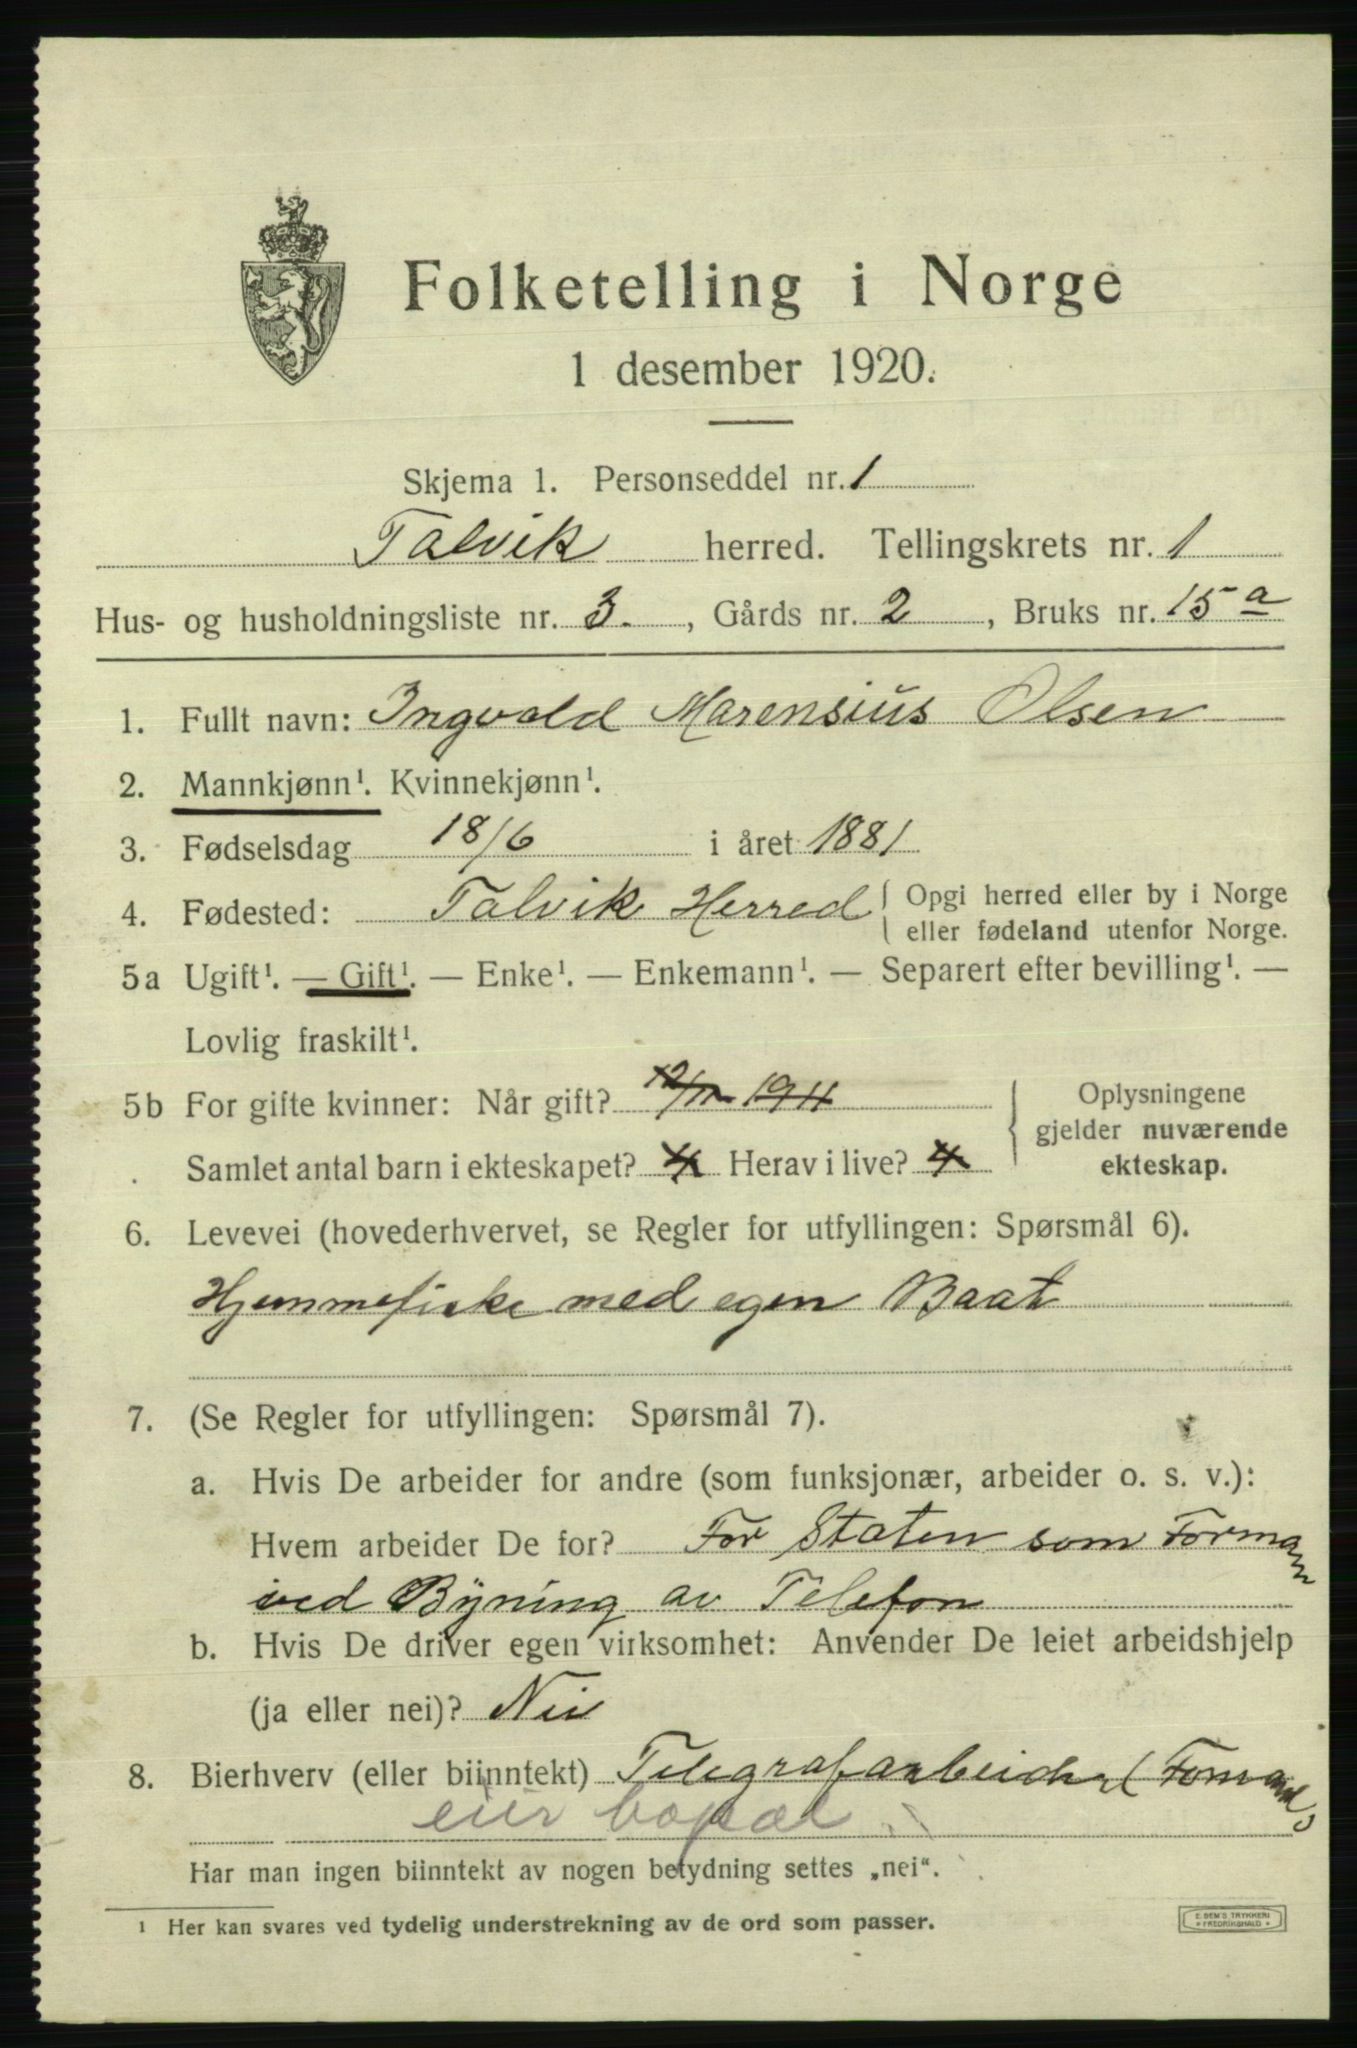 Folketelling i Norge
1 desember 1920.
Skjema 1. Personseddel nr. 1
Talvik herred. Tellingskrets nr. 1
Hus- og husholdningsliste nr. 3. , Gårds nr. 2 , Bruks nr. 15 a
1. Fullt navn: Ingvald Marensius Olsen
2. Mannkjønn¹. Kvinnekjønn¹.
3. Fødselsdag 18/6 i året 1881
4. Fødested: Talvik Herred { Opgi herred eller by i Norge
eller fødeland utenfor Norge.
5a Ugift¹. — Gift¹. — Enke¹. — Enkemann¹. — Separert efter bevilling¹. —
Lovlig fraskilt¹.
5b For gifte kvinner: Når gift? 1911
Oplysningene
gjelder nuværende
ekteskap.
Samlet antal barn i ekteskapet? 4 Herav i live? 4
6. Levevei (hovederhvervet, se Regler for utfyllingen: Spørsmål 6).
Hjemmefiske med egen Baat
7. (Se Regler for utfyllingen: Spørsmål 7).
a. Hvis De arbeider for andre (som funksjonær, arbeider o. s. v.):
Hvem arbeider De for? For Staten som Forman
ved Byning av Telefon
b. Hvis De driver egen virksomhet: Anvender De leiet arbeidshjelp
(ja eller nei)? Nei
8. Bierhverv (eller biinntekt) Telegrafarbeider (Formand)
eier bopæl
Har man ingen biinntekt av nogen betydning settes „nei“.
¹ Her kan svares ved tydelig understrekning av de ord som passer.
E. SEM'S TRYKKERI
FREDRIKSHALD